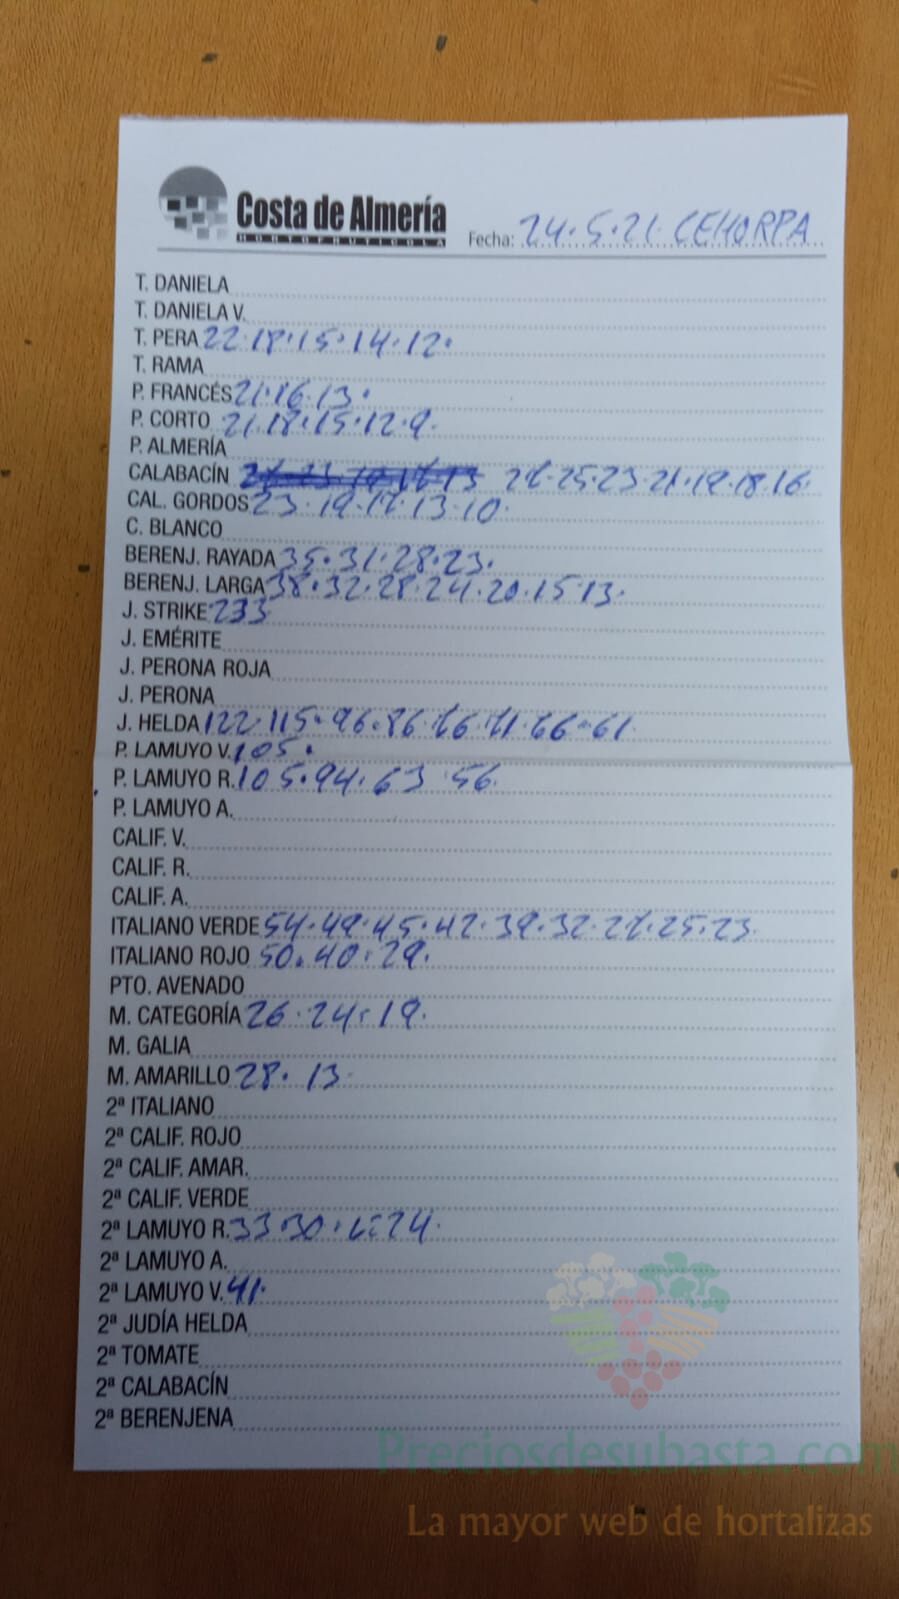 Costa de Almería
HORTOFRUTICOLA
Fecha: 24.5.21. CEHORPA
T. DANIELA
T. DANIELA V.
T. PERA 22.18.15.14.12.
T. RAMA
P. FRANCÉS 21.16.13.
P. CORTO 21.18.15.12.9.
P. ALMERÍA
CALABACÍN 27.25.23.21.19.18.16.
CAL. GORDOS 23.19.17.13.10.
C. BLANCO
BERENJ. RAYADA 35.31.28.23.
BERENJ. LARGA 38.32.28.24.20.15.13.
J. STRIKE 233
J. EMÉRITE
J. PERONA ROJA
J. PERONA
J. HELDA 122.115.96.86.76.71.66.61.
P. LAMUYO V. 105.
P. LAMUYO R. 105.94.63.56.
P. LAMUYO A.
CALIF. V.
CALIF. R.
CALIF. A.
ITALIANO VERDE 54.49.45.42.39.32.27.25.23.
ITALIANO ROJO 50.40.29.
PTO. AVENADO
M. CATEGORÍA 26.24.19.
M. GALIA
M. AMARILLO 28.13.
2ª ITALIANO
2ª CALIF. ROJO
2ª CALIF. AMAR.
2ª CALIF. VERDE
2ª LAMUYO R. 33.30. 24.
2ª LAMUYO A.
2ª LAMUYO V. 41.
2ª JUDÍA HELDA
2ª TOMATE
2ª CALABACÍN
2ª BERENJENA
Preciosdesubasta.com
La mayor web de hortalizas